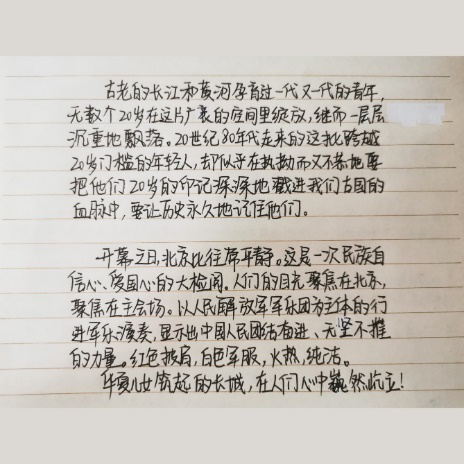 古老的长江和黄河孕育过一代又一代的青年,
无数个20岁在这片广袤的空间里绽放,继而一层层
沉重地飘落。20世纪80年代走来的这批跨越
20岁门槛的年轻人,却似乎在执拗而又不恭地要
把他们20岁的印记深深地戳进我们古国的
血脉中,要让历史永久地记住他们。
开幕之日,北京比往常平静。这是一次民族自
信心、爱国心的大检阅。人们的目光聚焦在北京,
聚焦在主会场。以人民解放军军乐团为主体的行
进军乐演奏,显示出中国人民团结奋进、无坚不摧
的力量。红色披肩,白色军服,火热,纯洁。
华夏儿女筑起的长城,在人们心中巍然屹立!